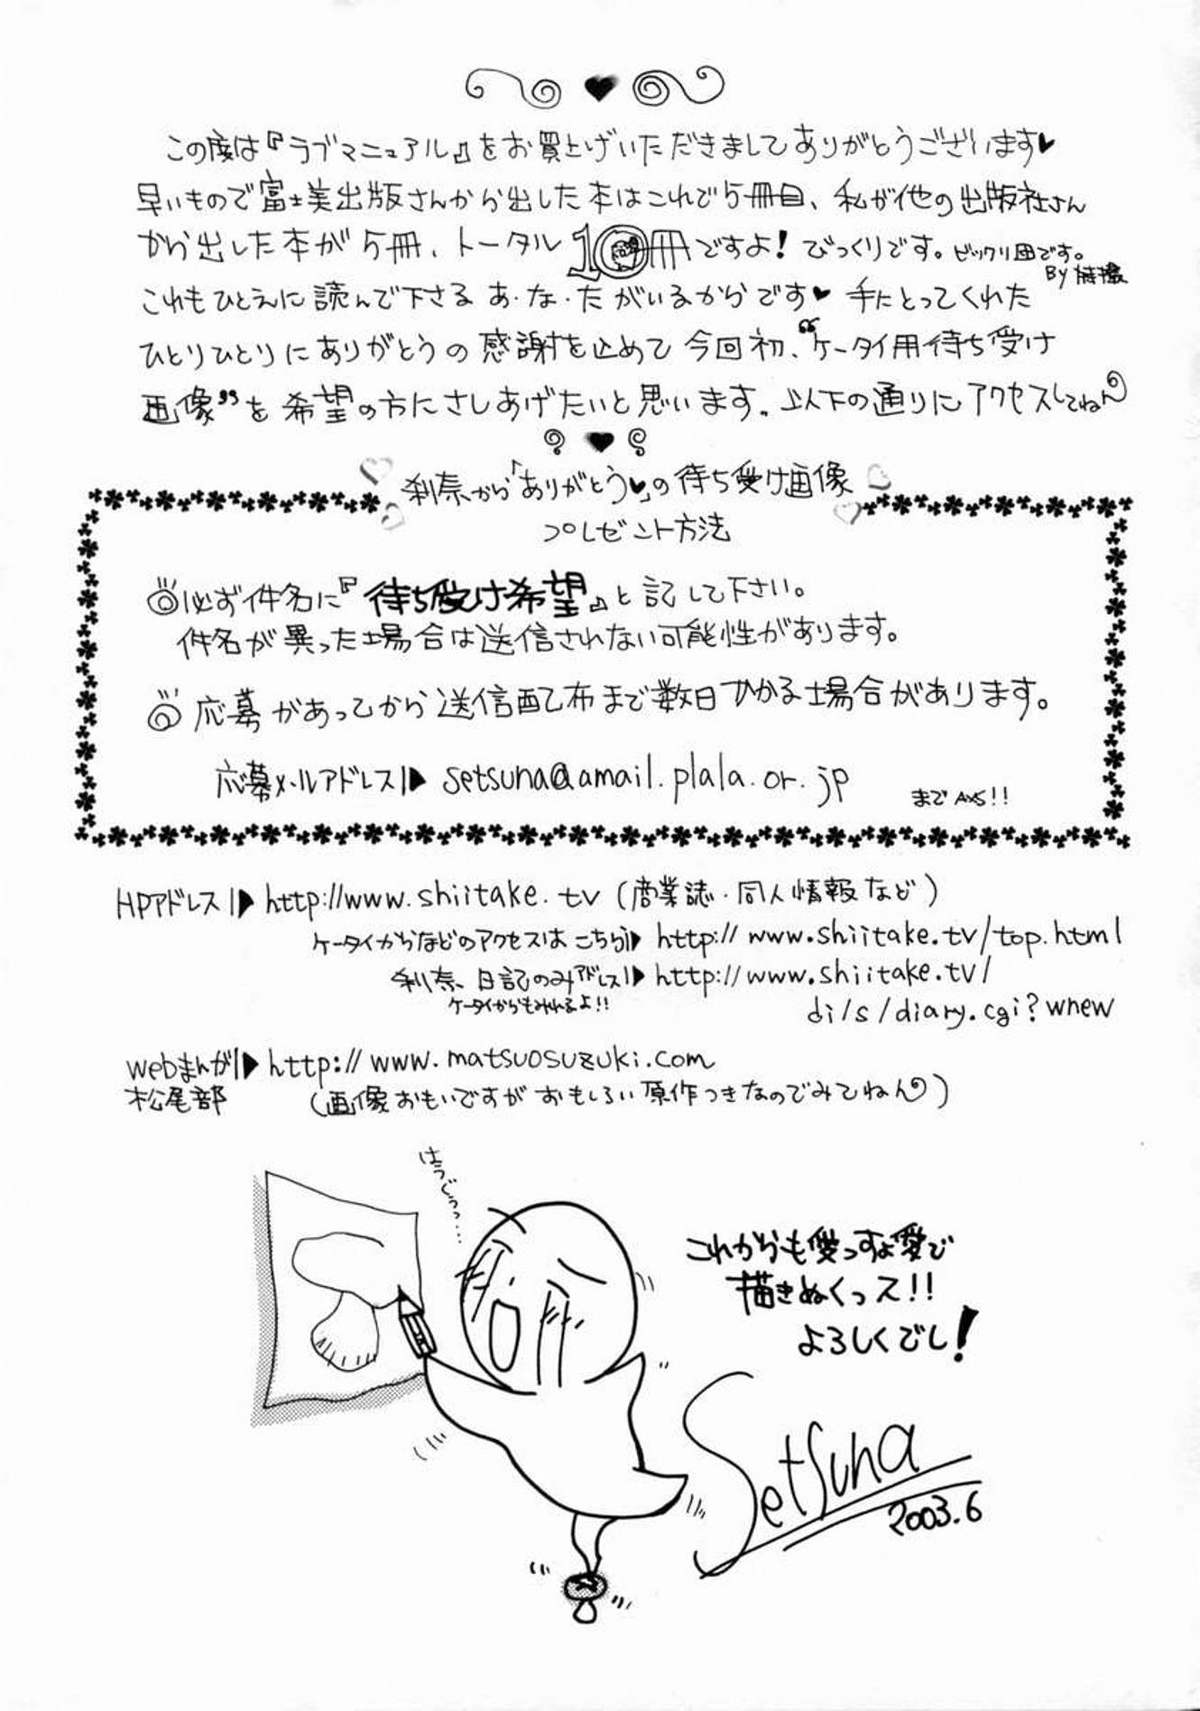 この度は『ラブマニュアル』をお買上げいただきましてありがとうございます♥
早いもので富士美出版さんから出した本はこれで5冊目、私が他の出版社さん
から出した本が5冊、トータル10冊ですよ！びっくりです。ビックリ団です。
By
これもひとえに読んで下さるあ・な・たがいるからです♥ 手にとってくれた
ひとりひとりにありがとうの感謝を止めて今回初、“ケータイ用待ち受け
画像”を希望の方にさしあげたいと思います。以下の通りにアクセスしてねん
刹奈から「ありがとう♥」の待ち受け画像
プレゼント方法
◎必ず件名に『待ち受け希望』と記して下さい。
件名が異った場合は送信されない可能性があります。
◎応募があってから送信配布まで数日かかる場合があります。
応募メールアドレス▶ setsuna@amail.plala.or.jp
まで
HPアドレス▶ http://www.shiitake.tv (商業誌・同人情報など)
ケータイからなどのアクセスはこちら▶ http://www.shiitake.tv/top.html
刹奈、日記のみアドレス▶ http://www.shiitake.tv/
ケータイからもみれるよ!!
di/s/diary.cgi?wnew
webまんが▶ http://www.matsuosuzuki.com
松尾部 (画像おもいですがおもしろい原作つきなのでみてねん)
はうぐうっ…
これからも愛っすよ愛で
描きぬくっス!!
よろしくでし!
Setsuna
2003.6